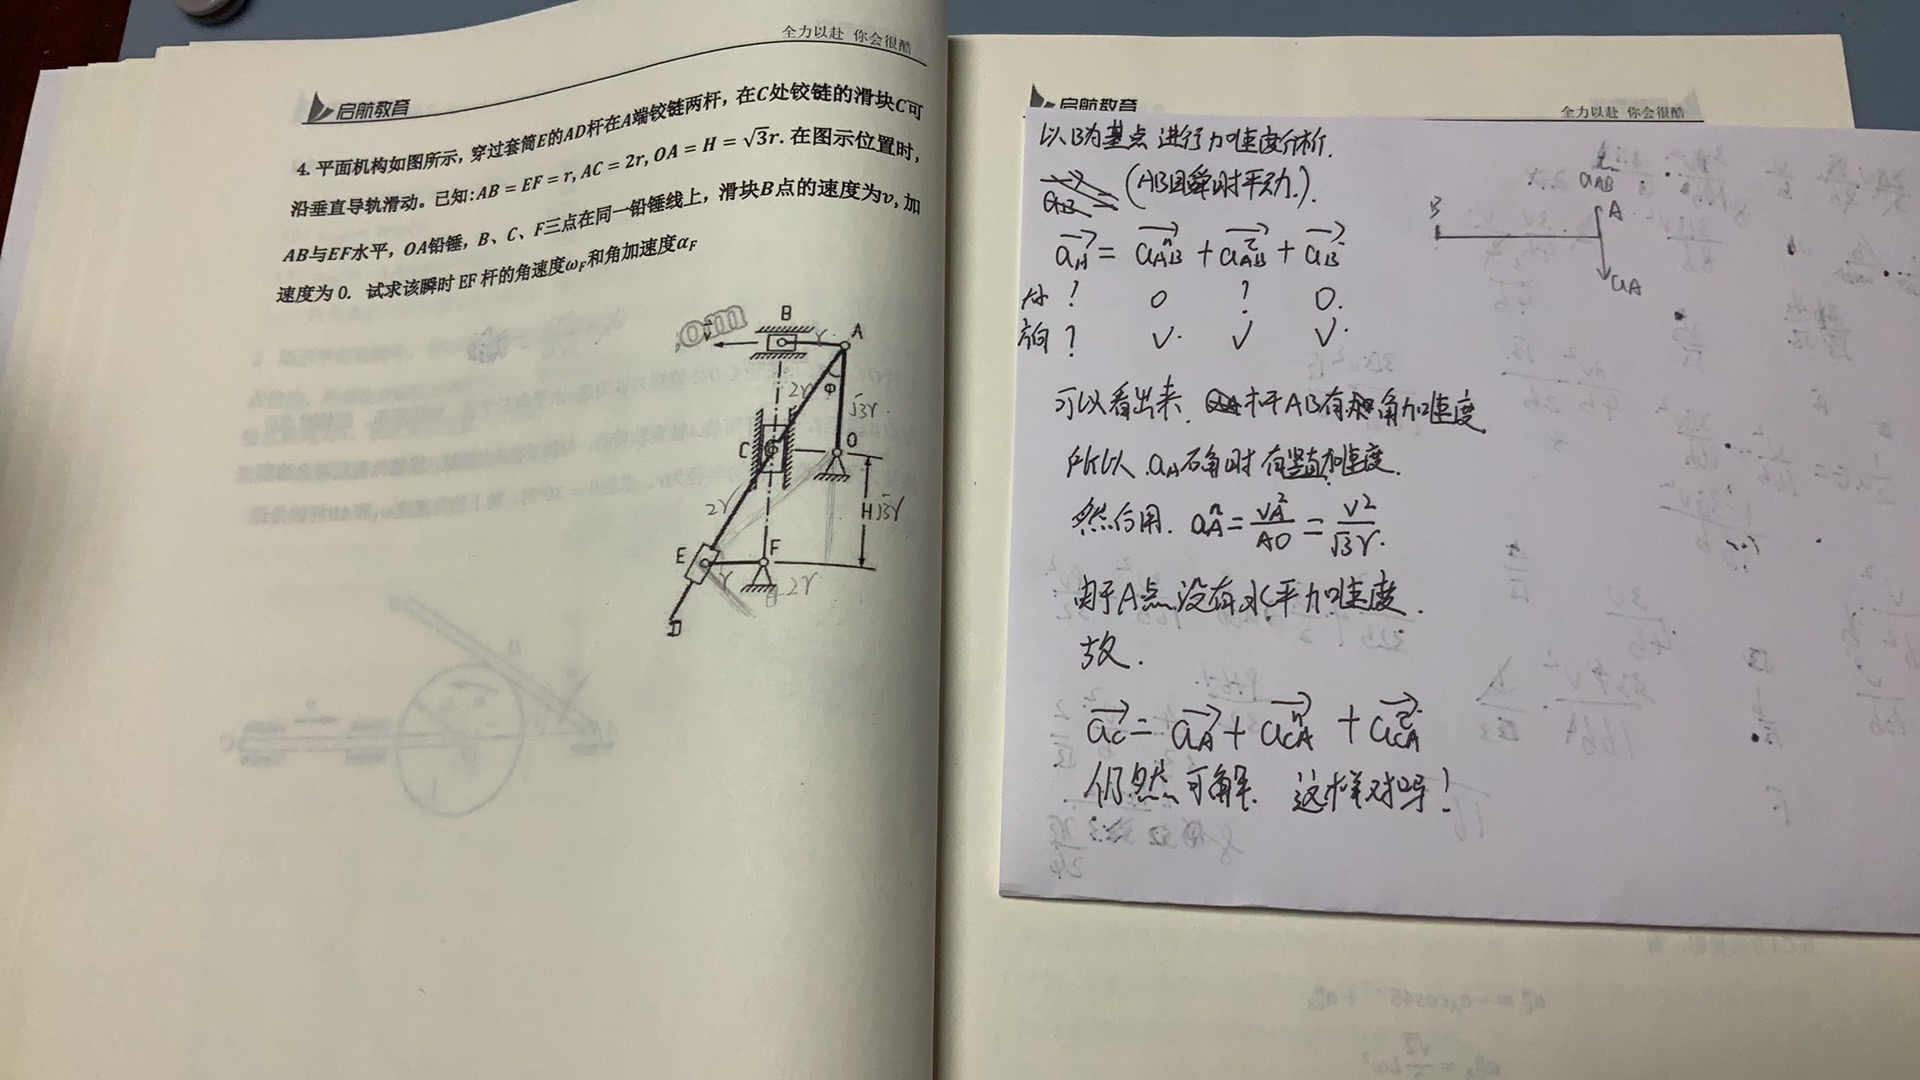 全力以赴 你会很酷
启航教育
4. 平面机构如图所示，穿过套筒E的AD杆在A端铰链两杆，在C处铰链的滑块C可
沿垂直导轨滑动。已知:AB = EF = r, AC = 2r, OA = H = √3r. 在图示位置时，
AB与EF水平，OA铅锤，B、C、F三点在同一铅锤线上，滑块B点的速度为v, 加
速度为 0. 试求该瞬时 EF 杆的角速度ωF和角加速度αF
.om
B
v
r
A
2r
φ
√3r
C
O
2r
H
√3r
E
F
r
2r
D
启航教育
全力以赴 你会很酷
以B为基点进行加速度分析.
(AB因瞬时平动.)
aA = aAB^n + aAB^τ + aB
大小 ? 0 ? 0.
方向 ? √. √ √.
B
aAB^τ
A
aA
可以看出来 杆AB有角加速度
所以 aA 有竖直加速度.
然后用. aA^n = vA²/AO = v²/√3r.
由于A点没有水平加速度.
故.
aC = aA + aCA^n + aCA^τ
仍然可解. 这样对吗!